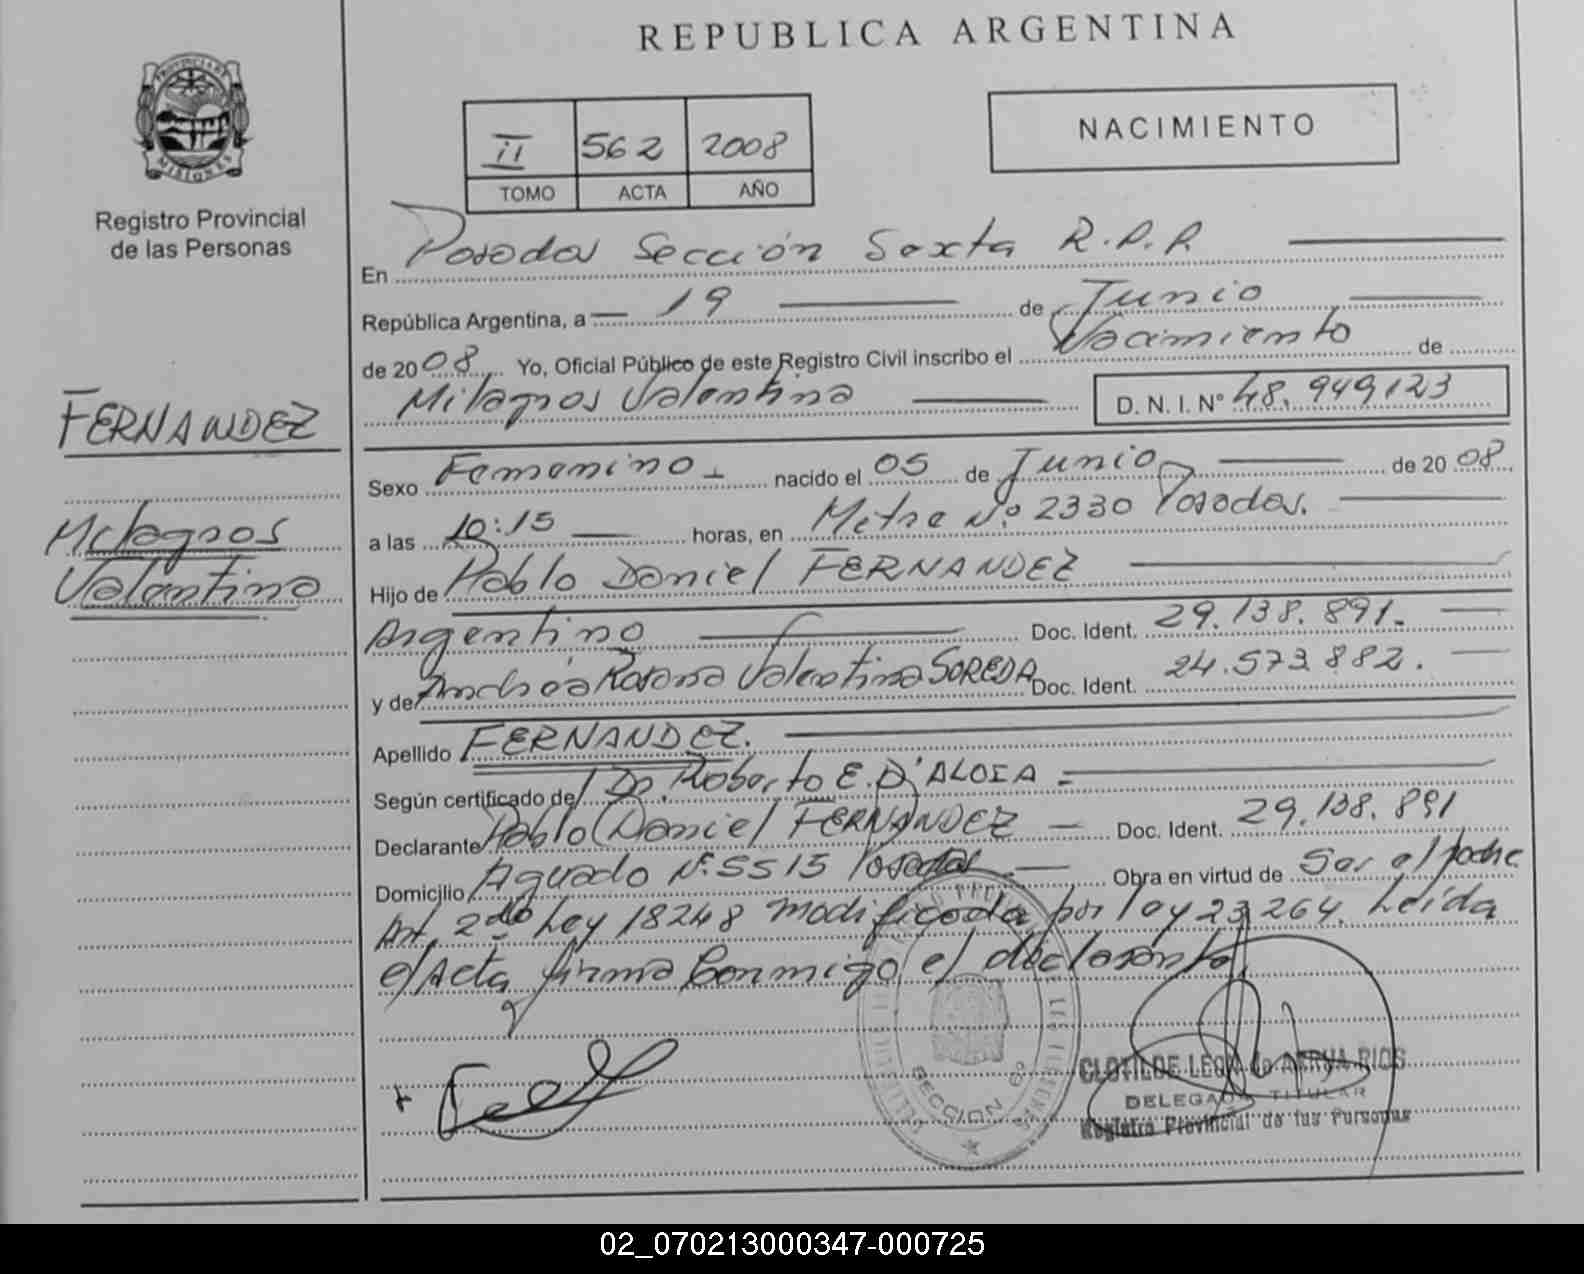 REPUBLICA ARGENTINA
PROVINCIA DE
MISIONES
Registro Provincial
de las Personas
II 562 2008
TOMO ACTA AÑO
NACIMIENTO
En Posadas Sección Sexta R.P.P.
República Argentina, a 19 de Junio
de 2008 Yo, Oficial Público de este Registro Civil inscribo el Nacimiento de
Milagros Valentina D. N. I. N° 48.949,123
FERNANDEZ
Milagros
Valentina
Sexo Femenino nacido el 05 de Junio de 2008
a las 10:15 horas, en Mitre N.º 2330 Posadas.
Hijo de Pablo Daniel FERNANDEZ
Argentino Doc. Ident. 29.138.891.
y de Rosana Valentina SOREDA Doc. Ident. 24.573.882.
Apellido FERNANDEZ.
Según certificado de Dr. Roberto E. D'ALOIA
Declarante Pablo Daniel FERNANDEZ Doc. Ident. 29.138.891
Domicilio Aguado N.º 5515 Posadas Obra en virtud de Ser el padre
Art. 2do Ley 18248 modificada por ley 23264. Leída
el Acta, firma Conmigo el declarante
SECCION 6º
CLOTILDE LEON de ARRYA RIOS
DELEGADA TITULAR
Registro Provincial de las Personas
02_070213000347-000725